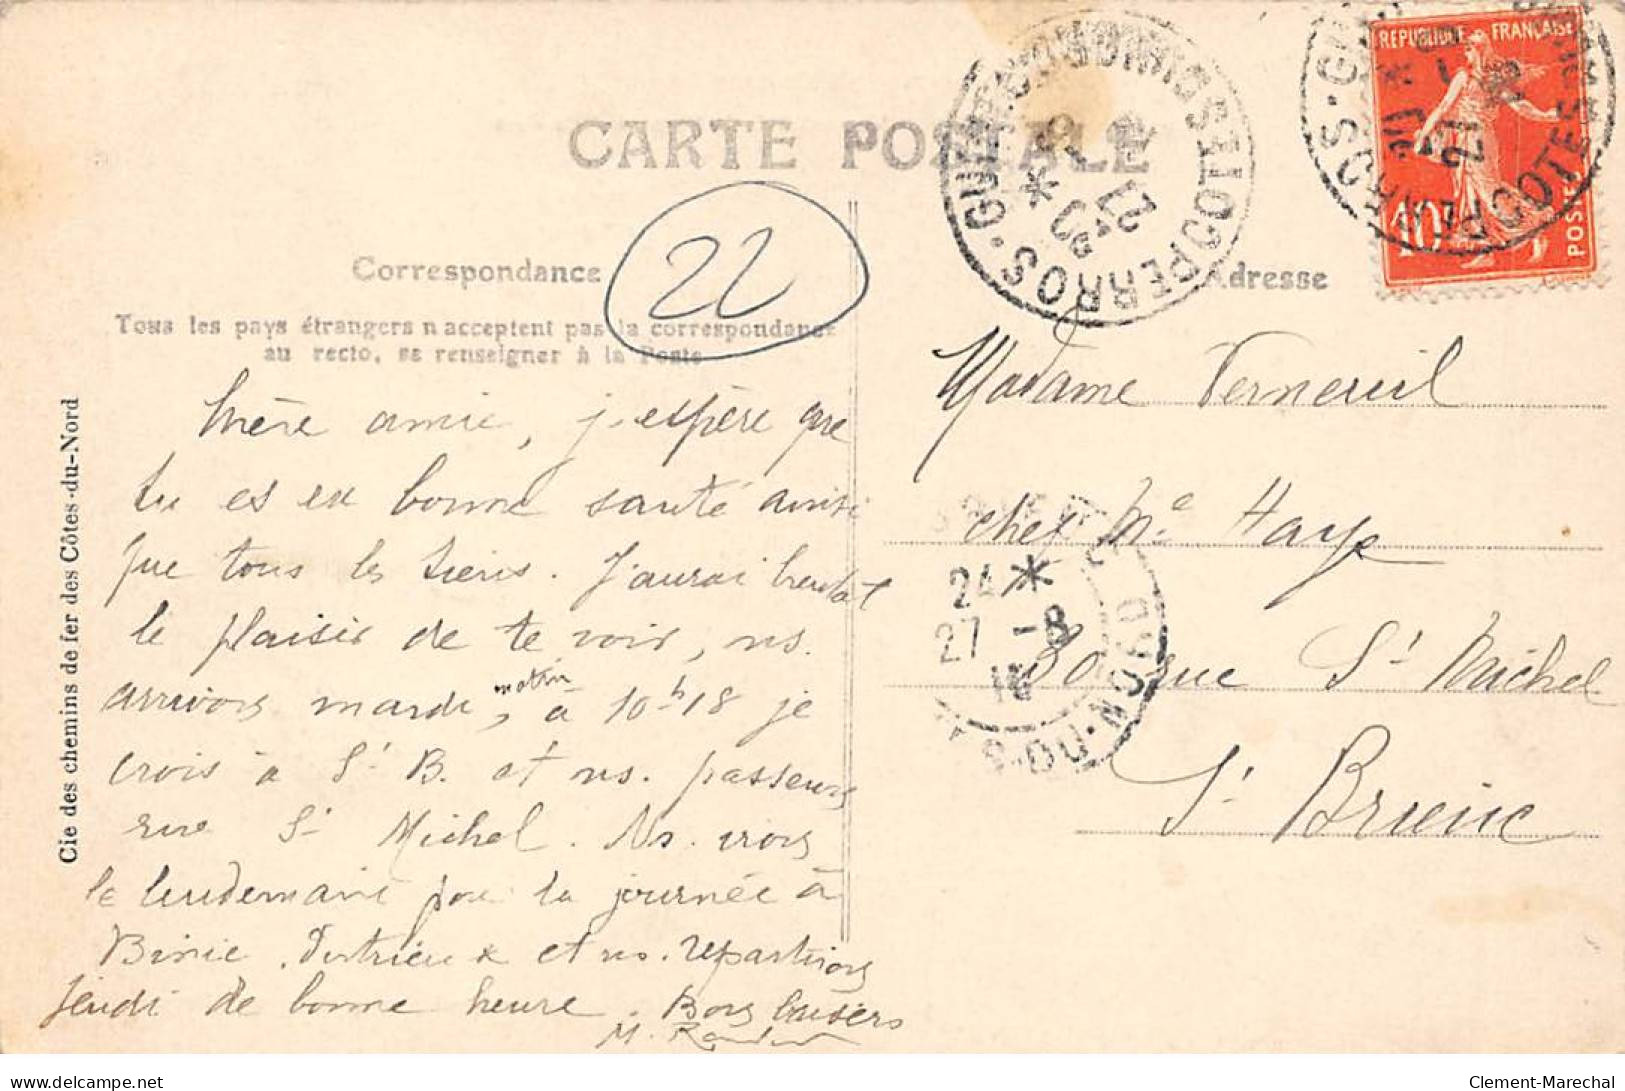 CARTE POSTALE
Correspondance
Adresse
22
Tous les pays étrangers n'acceptent pas la correspondance
au recto, se renseigner à la Poste
Cie des chemins de fer des Côtes-du-Nord
REPUBLIQUE FRANÇAISE
10
POSTES
PERROS-GUIREC
COTES DU NORD
20 *
27 -8
24 *
27 -8
DU-NORD
Chère amie, j'espère que
tu es en bonne santé ainsi
que tous les tiens. J'aurai bientôt
le plaisir de te voir, ns.
arrivons mardi, matin à 10h18 je
crois à St B. et ns. passerons
rue St Michel. Ns. irons
le lendemain pour la journée à
Binic. et ns. repartirons
jeudi de bonne heure. Bons baisers
M.
Madame Verneuil
chez Me Haye
St Michel
St Brieuc
Clement-Marechal
delcampe.net